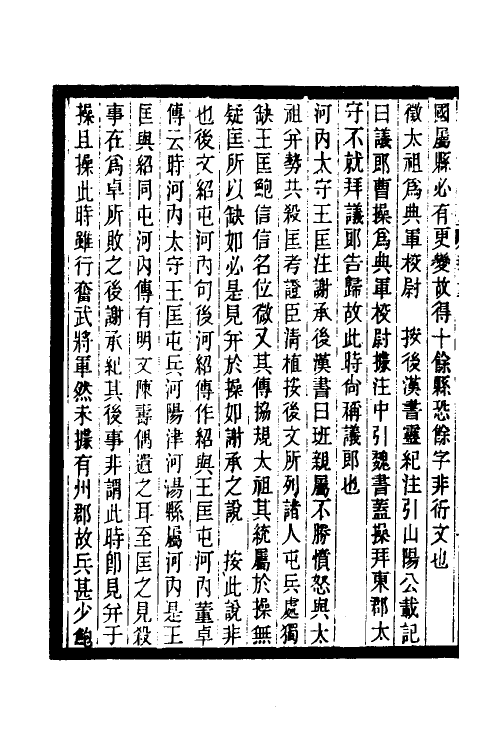 國屬縣必有更變故得十餘縣恐餘字非衍文也
徵太祖爲典軍校尉　按後漢書靈紀注引山陽公載記
曰議郎曹操爲典軍校尉據注中引魏書蓋操拜東郡太
守不就拜議郎告歸故此時尚稱議郎也
河內太守王匡注謝承後漢書曰班親屬不勝憤怒與太
祖并勢共殺匡考證臣清植按後文所列諸人屯兵處獨
缺王匡鮑信信名位微又其傳協規太祖其統屬於操無
疑匡所以缺如必是見并於操如謝承之說　按此說非
也後文紹屯河內句後河紹傳作紹與王匡屯河內董卓
傳云時河內太守王匡屯兵河陽津河湯縣屬河內是王
匡與紹同屯河內傳有明文陳壽偶遺之耳至匡之見殺
事在爲卓所敗之後謝承紀其後事非謂此時卽見并于
操且操此時雖行奮武將軍然未據有州郡故兵甚少鮑